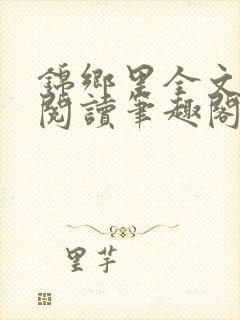 錦鄉里全文
閱讀筆趣閣
里芋